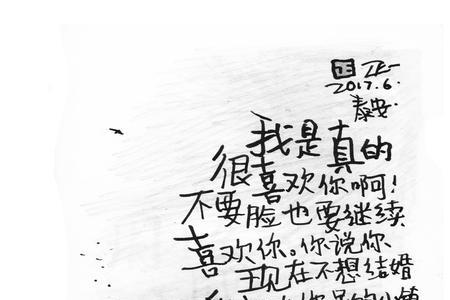 2017.6.
泰安.
我是真的
很喜欢你啊!
不要脸也要继续
喜欢你。你说你
现在不想结婚